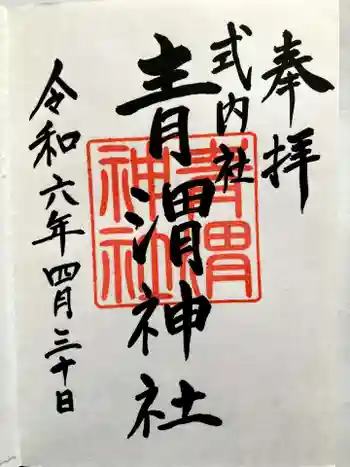 奉拝
式内社
青渭神社
令和六年四月三十日
青渭
神社